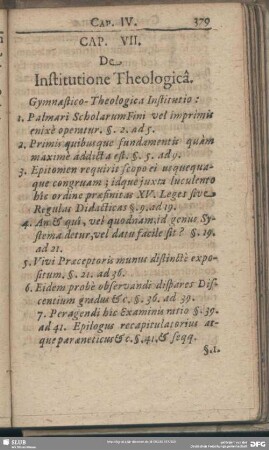 CAP. IV. 379
CAP. VII.
De
Institutione Theologicâ.
Gymnastico-Theologica Institutio:
1. Palmari Scholarum Fini vel imprimis
enixè operatur. §. 2. ad 5.
2. Primis quibusque fundamentis quàm
maximè addicta est. §. 5. ad 9.
3. Epitomen requirit scopo ei usquequa-
que congruam; idque juxta luculento
hîc ordine præfinitas XV. Leges sive
Regulas Didacticas §. 9. ad 19.
4. An & qui, vel quodnam, id genus Sy-
stema detur, vel datu facile sit? §. 19.
ad 21.
5. Vivi Præceptoris munus distinctè expo-
situm. §. 21. ad 36.
6. Eidem probè observandi dispares Dis-
centium gradus &c. §. 36. ad 39.
7. Peragendi hîc Examinis ratio §. 39.
ad 41. Epilogus recapitulatorius at-
que paræneticus &c. §. 41. & seqq.
§. 1.